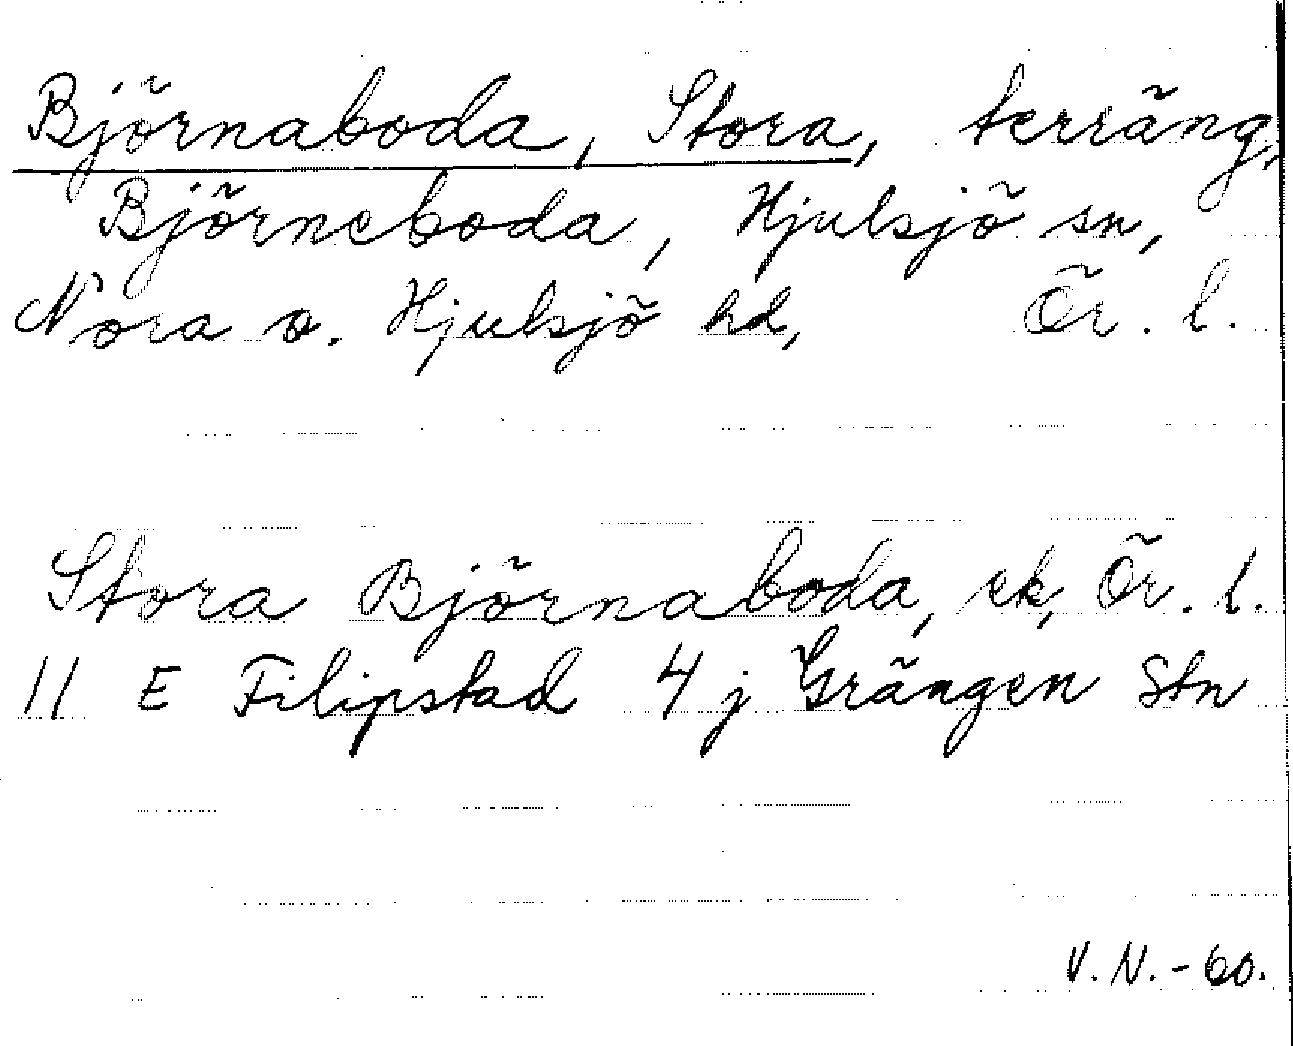 Björnaboda, Stora, terräng,
Björneboda, Hjulsjö sn,
Nora o. Hjulsjö hd, Ör. l.
Stora Björnaboda, ek, Ör. l.
11 E Filipstad 4 j Grängen Stn
V. N. - 60.